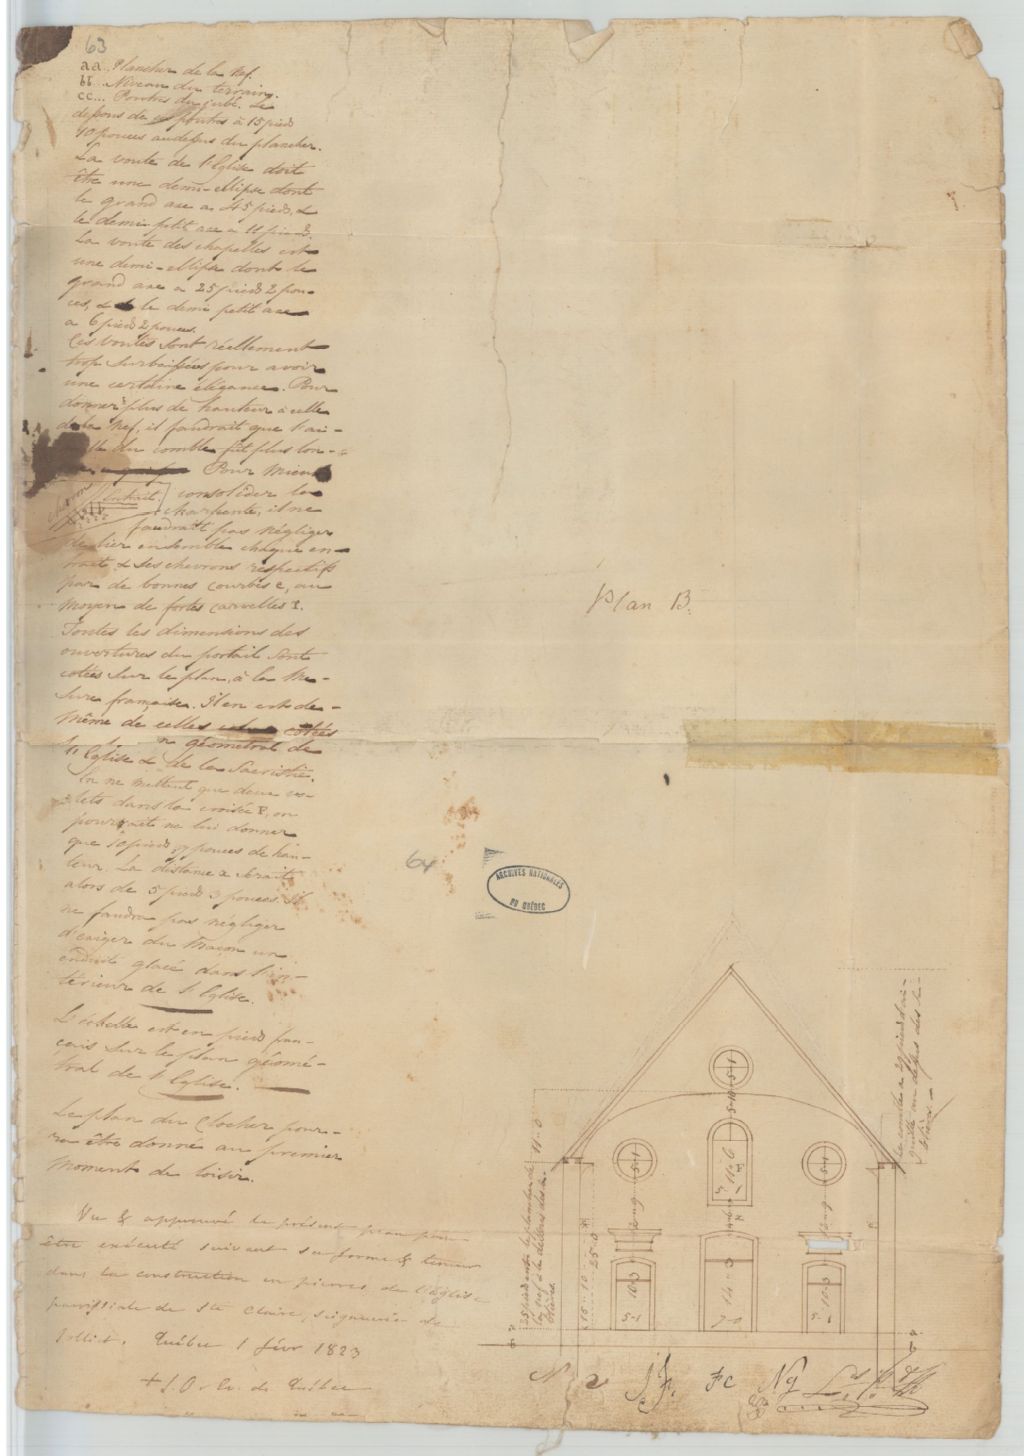 63
aa... Plancher de la Nef.
bb... Niveau du terrain.
cc... Poutres du jubé. Le
dessous de ces poutres à 15 pieds
10 pouces audessus du plancher.
La voute de l'Eglise doit
être une demi-ellipse dont
le grand axe a 45 pieds, &
le demi petit axe a 11 pieds.
La voute des chapelles est
une demi-ellipse dont le
grand axe a 25 pieds 2 pou-
ces, & le demi petit axe
a 6 pieds 2 pouces.
Ces voutes sont réellement
trop surbaissées pour avoir
une certaine élégance. Pour
donner plus de hauteur à celle
de la Nef, il faudrait que l'ai-
du comble fût plus lon-
Pour mieux
chevron
Entrait.
consolider la
charpente, il ne
faudrait pas négliger
de lier ensemble chaque en-
trait & ses chevrons respectifs
par de bonnes courbes c, au
moyen de fortes carvelles
Toutes les dimensions des
ouvertures du portail sont
cotées sur le plan, à la me-
sure française. Il en est de
même de celles cotées
géometral de
l'Eglise & de la Sacristie.
En ne mettant que deux vo-
lets dans la croisée F, on
pourrait ne lui donner
que 10 pieds 7 pouces de hau-
teur. La distance x serait
alors de 5 pieds 3 pouces. Il
ne faudra pas négliger
d'exiger du Maçon un
enduit glacé dans l'in-
térieur de l'Eglise.
L'échelle est en pieds fran-
çais sur le plan géomé-
tral de l'Eglise.
Le plan du Clocher pour-
ra être donné au premier
moment de loisir.
Vu & approuvé le présent plan pour
être exécuté suivant sa forme & teneur
dans la construction en pierres de l'église
paroissiale de Ste Claire, seigneurie de
Jolliet. Québec 1 févr 1823
+ J. O. Ev. de Québec
Plan B.
64
ARCHIVES NATIONALES
DU QUÉBEC
Le comble a 29 pieds d'ai-
guille au dessus des
25 pieds entre le plancher de
la nef & le dessus des
11-0
15-10
25-0
5-1
5-11
5-1
11-6
5-1
2-9
2-9
10-3
5-1
14-3
7-0
10-3
N
Fc